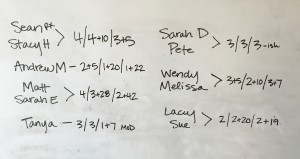 Sean R+
Stacy H > 4/4+10/3+5
Andrew M - 2+5/1+20/1+22
Matt
Sarah E > 4/3+28/2+42
Tanya - 3/3/1+7 MOD
Sarah D
Pete > 3/3/3-ish
Wendy
Melissa > 3+5/2+10/3+7
Lacey
Sue > 2/2+20/2+19